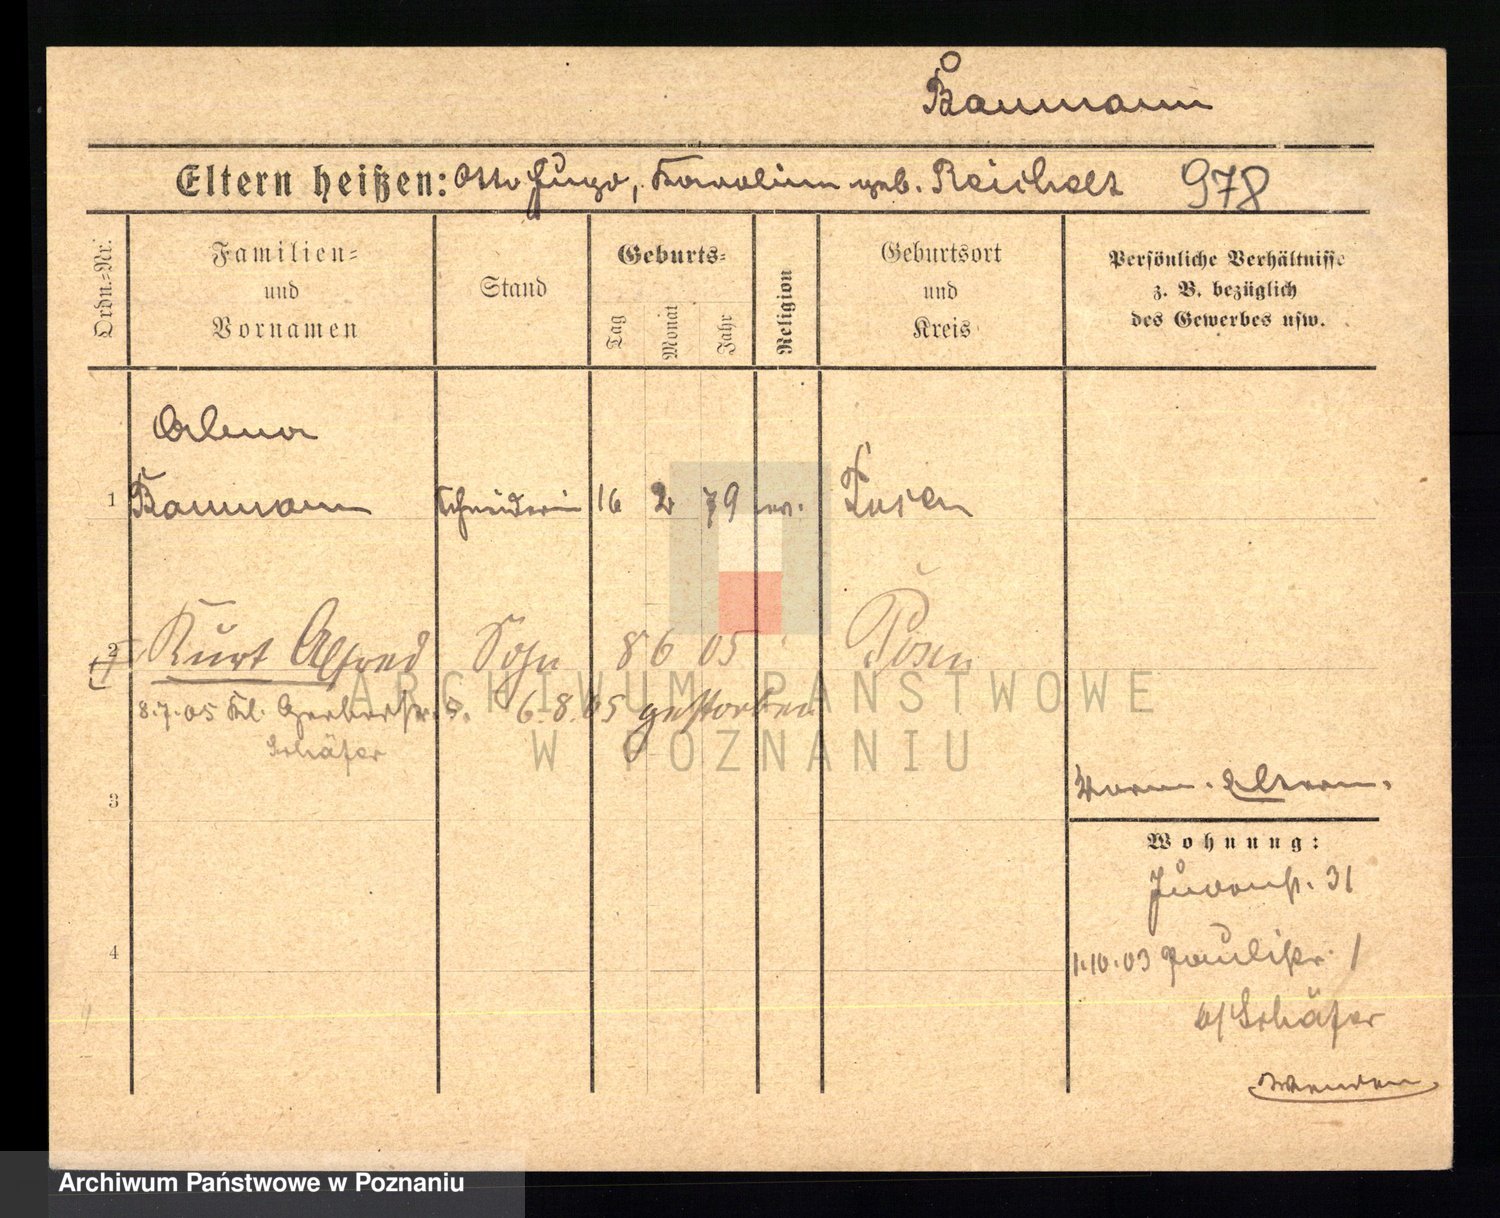 Baumann
Eltern heißen: Otto Hugo, Karoline geb. Reichelt 978
Ordn.=Nr.
Familien=
und
Vornamen
Stand
Geburts=
Tag
Monat
Jahr
Religion
Geburtsort
und
Kreis
Persönliche Verhältnisse
z. B. bezüglich
des Gewerbes usw.
Alma
1 Baumann Schneiderin 16 2 79 ev. Posen
2 Kurt Alfred Sohn 8 6 05 Posen
8.7.05 Kl. Gerberstr. 5. 6.8.05 gestorben
Schäfer
3
Eltern.
Wohnung:
31
4
1.10.03 Paulistr. 1
b/Schäfer
Wenden
ARCHIWUM PAŃSTWOWE
W POZNANIU
Archiwum Państwowe w Poznaniu